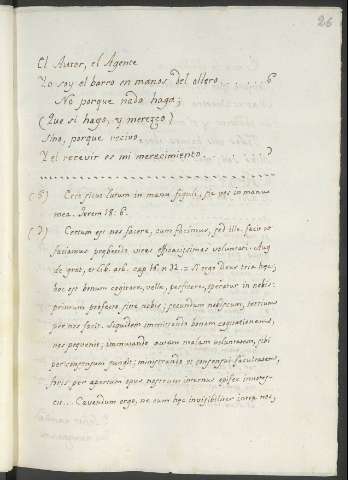 26
El Autor, el Agente
Yo soy el barro en manos del ollero ........ 6
No porque nada haga;
(Que si hago, y merezco)
Sino, porque recivo,
Y el recevir es mi merecimiento. 7
(6) Ecce sicut lutum in manu figuli, sic vos in manu
mea. Jerem 18. 6.
(7) Certum est nos facere, cum facimus, sed ille facit ut
faciamus præbendo vires efficacissimas voluntati. Aug.
de grat, et lib. arb. cap 16. n 32. Si ergo Deus tria hæc,
hoc est bonum cogitare, velle, perficere, operatur in nobis:
primum profecto sine nobis; secundum nobiscum, tertium
per nos facit. Siquidem immittendo bonam cogitationem,
nos prevenit; immutando malam voluntatem, sibi
per consensum jungit; ministrando et consensui facultatem,
foris per apertum opus nostrum internus opifex innotes-
cit... Cavendum ergo, ne cum hæc invisibiliter intra nos,